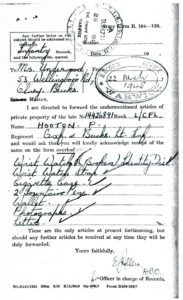 Any further letter on this
subject should be addressed to:—
Infantry Records,
and the following No. quoted.
Army Form B. 104—126.
Record Office,
19
Mrs. Underwood
53 Wellingboro Rd
Olney Bucks
22 Mch 1945
WARWICK
MADAM,
I am directed to forward the undermentioned articles of
private property of the late No. 14426891 Rank L/CPL.
Name HOOTON P.
Regiment Oxf. & Bucks Lt. Inf.
and would ask you kindly acknowledge receipt of the
same on the form overleaf:—
Wrist Watch (Broken) Identity Disc
Wrist Watch Strap
Cigarette Case
2 Fountain Pens
Wallet
Photographs
Letters
These are the only articles at present forthcoming, but
should any further articles be received at any time they will be
duly forwarded.
Yours faithfully,
Officer in charge of Records.